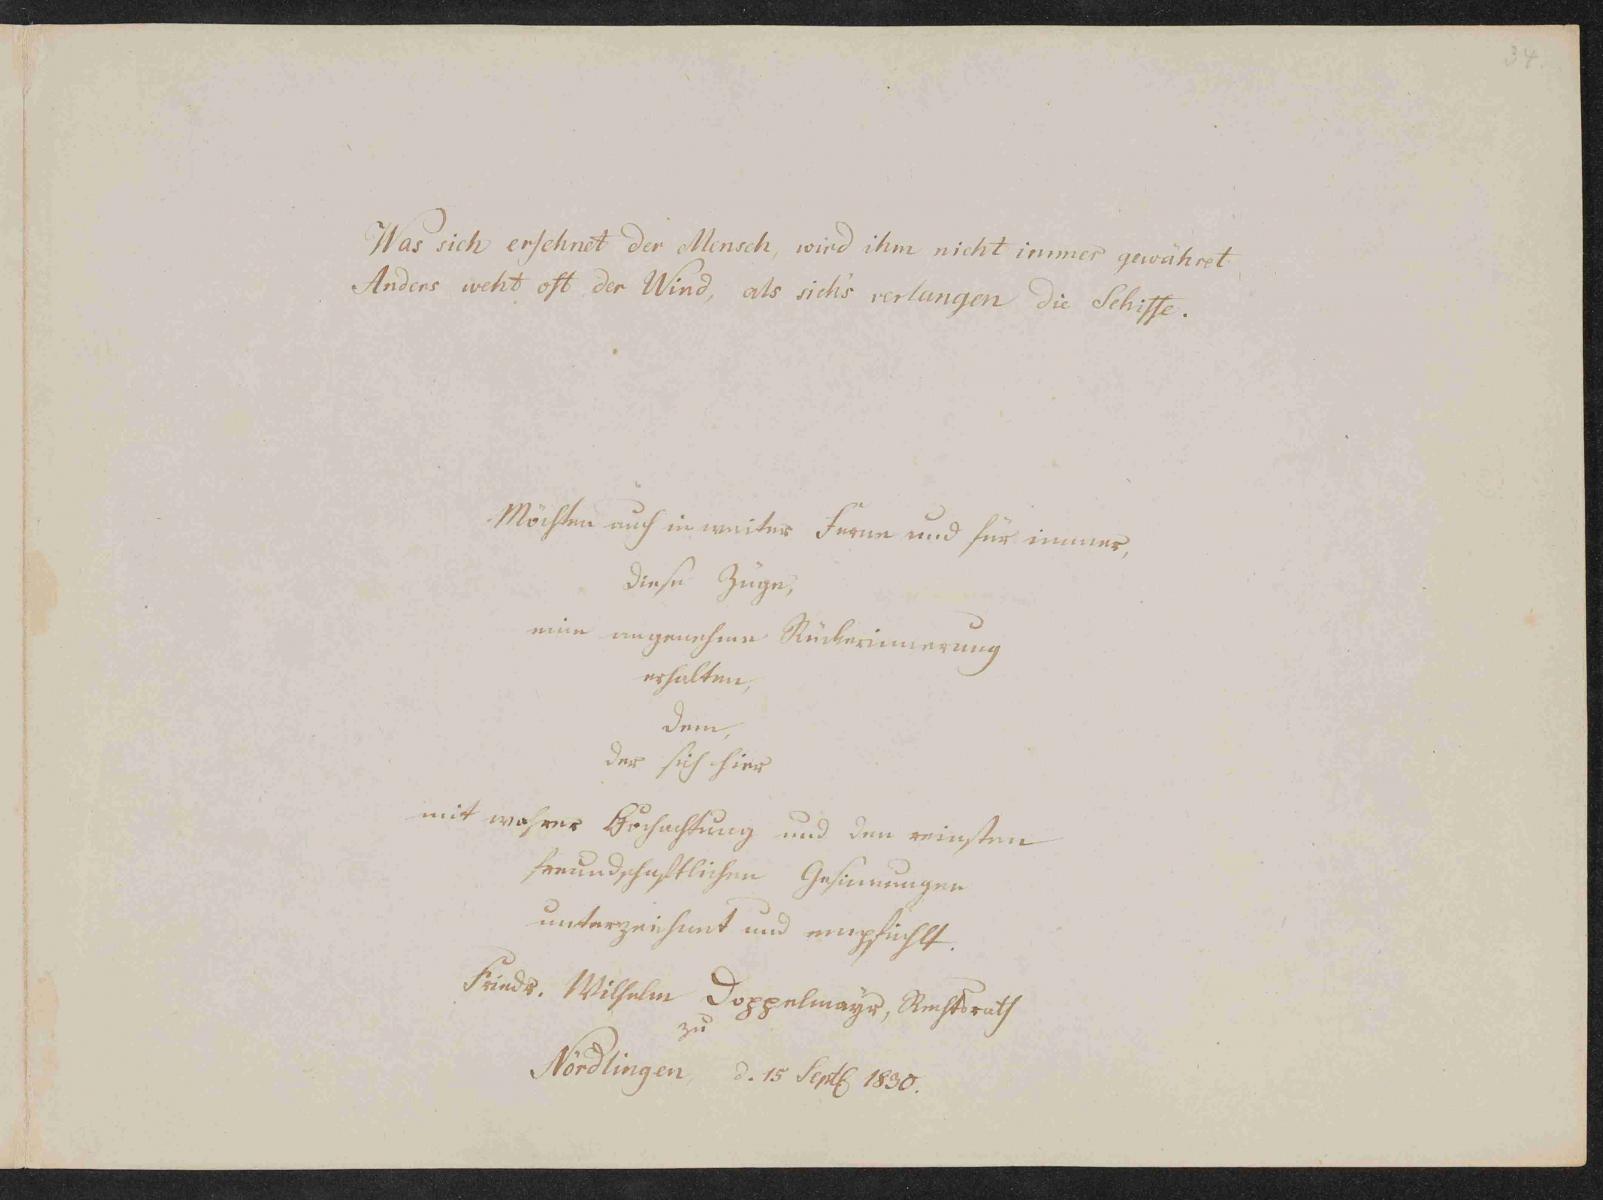 34.
Was sich ersehnet der Mensch, wird ihm nicht immer gewähret
Anders weht oft der Wind, als sich's verlangen die Schiffe.
Möchten auch in weiter Ferne und für immer,
diese Züge,
eine angenehme Rückerinnerung
erhalten,
dem,
der sich hier
mit wahrer Hochachtung und den reinsten
freundschaftlichen Gesinnungen
unterzeichnet und empfiehlt.
Friedr. Wilhelm Doppelmayr, Rechtsrath
zu
Nördlingen, d. 15 Septb 1830.